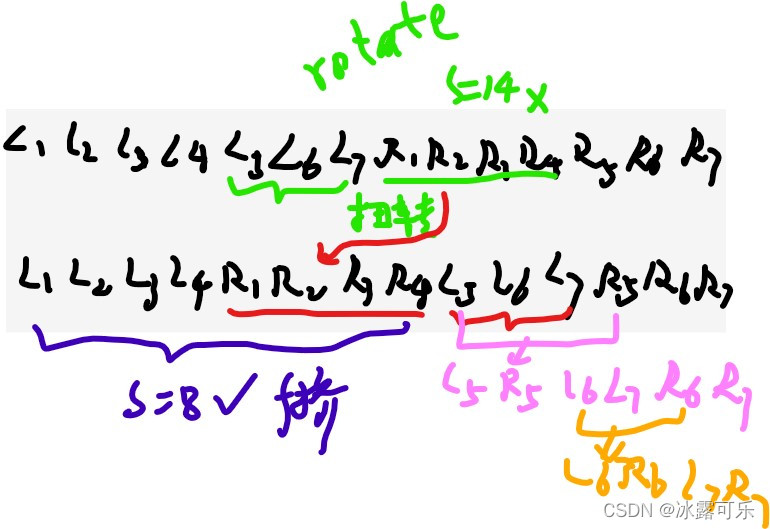 rotate
S=14 x
L1 L2 L3 L4 L5 L6 L7 R1 R2 R3 R4 R5 R6 R7
扭转
L1 L2 L3 L4 R1 R2 R3 R4 L5 L6 L7 R5 R6 R7
S=8 ✓
L5 R5 L6 L7 R6 R7
L6 R6 L7 R7
CSDN @冰露可乐